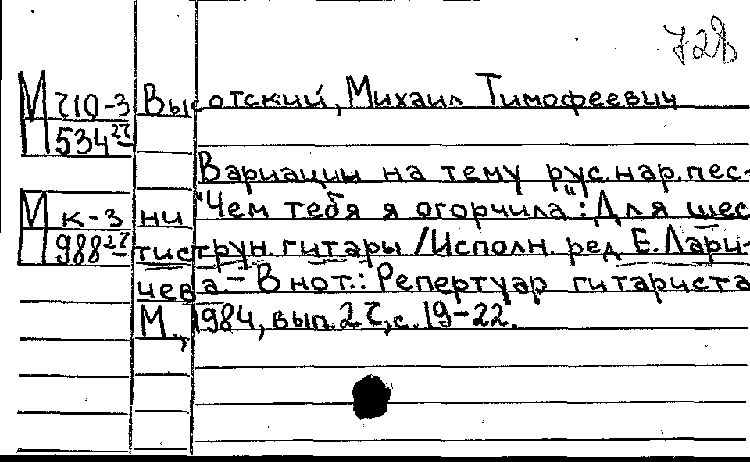 728
М 210-3 Высотский, Михаил Тимофеевич
534 27
Вариации на тему рус.нар.пес-
М к-3 ни "Чем тебя я огорчила": Для шес-
988 27 тиструн.гитары /Исполн. ред Е.Лари-
чева.— В нот.: Репертуар гитариста
М., 1984, вып.27, с.19-22.